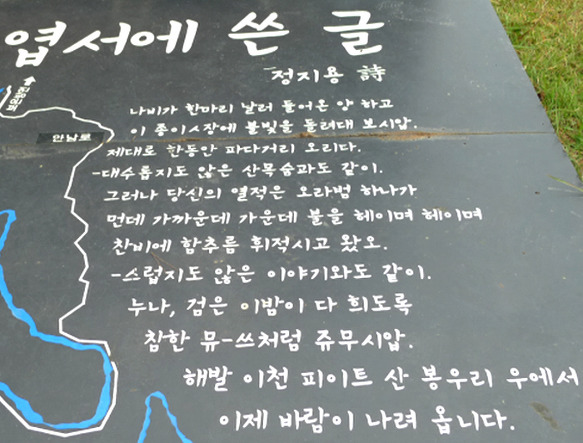 엽서에 쓴 글
정지용 詩
안남로
나비가 한마리 날러 들어온 양 하고
이 종이ㅅ장에 불빛을 돌려대 보시압.
제대로 한동안 파다거리 오리다.
-대수롭지도 않은 산목숨과도 같이.
그러나 당신의 열적은 오라범 하나가
먼데 가까운데 가운데 불을 헤이며 헤이며
찬비에 함추름 휘적시고 왔오.
-스럽지도 않은 이야기와도 같이.
누나, 검은 이밤이 다 희도록
참한 뮤-쓰처럼 쥬무시압.
해발 이천 피이트 산 봉우리 우에서
이제 바람이 나려 옵니다.